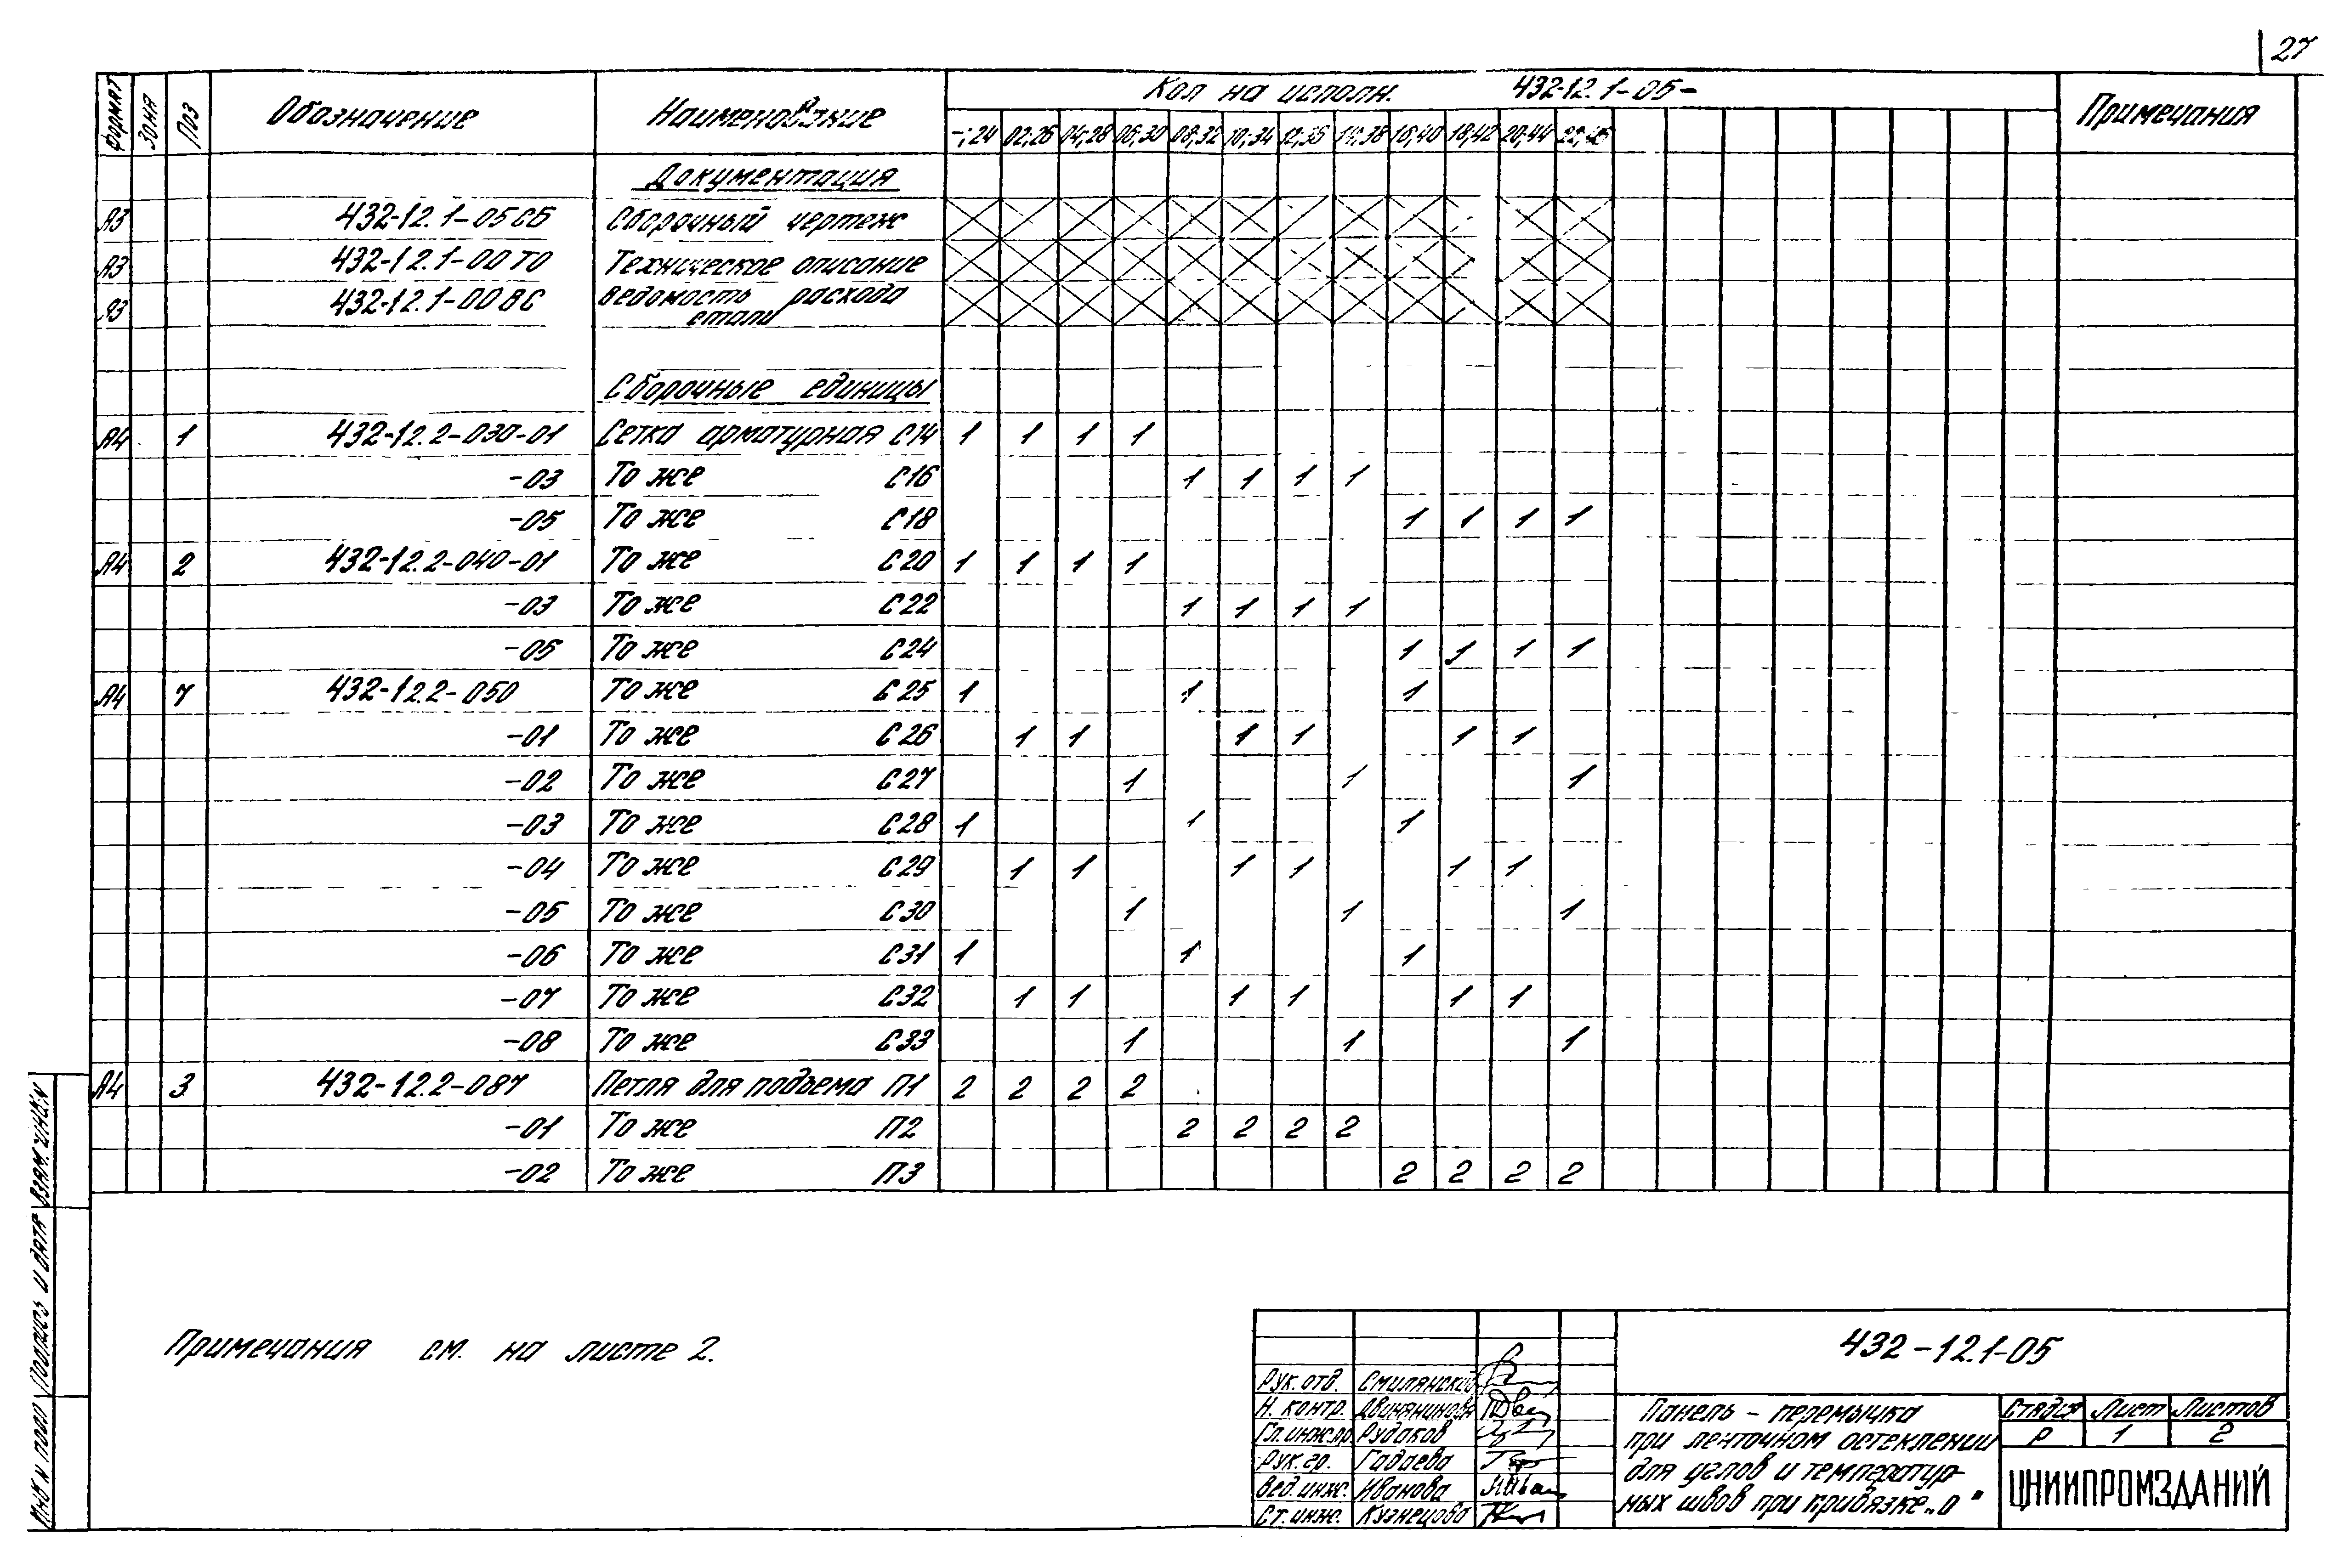 27
Формат Зона Поз Обозначение Наименование Кол на исполн. 432-12.1-05- Примечания
-;24 02;26 04;28 06;30 08;32 10;34 12;36 14;38 16;40 18;42 20;44 22;46
Документация
А3 432-12.1-05СБ Сборочный чертеж
А3 432-12.1-00ТО Техническое описание
А3 432-12.1-00ВС Ведомость расхода
стали
Сборочные единицы
А4 1 432-12.2-030-01 Сетка арматурная С14 1 1 1 1
-03 То же С16 1 1 1 1
-05 То же С18 1 1 1 1
А4 2 432-12.2-040-01 То же С20 1 1 1 1
-03 То же С22 1 1 1 1
-05 То же С24 1 1 1 1
А4 7 432-12.2-050 То же С25 1 1 1
-01 То же С26 1 1 1 1 1 1
-02 То же С27 1 1 1
-03 То же С28 1 1 1
-04 То же С29 1 1 1 1 1 1
-05 То же С30 1 1 1
-06 То же С31 1 1 1
-07 То же С32 1 1 1 1 1 1
-08 То же С33 1 1 1
А4 3 432-12.2-087 Петля для подъема П1 2 2 2 2
-01 То же П2 2 2 2 2
-02 То же П3 2 2 2 2
Примечания см. на листе 2.
432-12.1-05
Рук. отд. Смилянский
Н. контр. Двинянинова
Гл.инж.пр. Рудаков
Рук. гр. Гадаева
Вед. инж. Иванова
Ст. инж. Кузнецова
Панель - перемычка
при ленточном остеклении
для углов и температур-
ных швов при привязке „0"
Стадия Лист Листов
Р 1 2
ЦНИИПРОМЗДАНИЙ
Инв N подл Подпись и дата Взам. инв. N